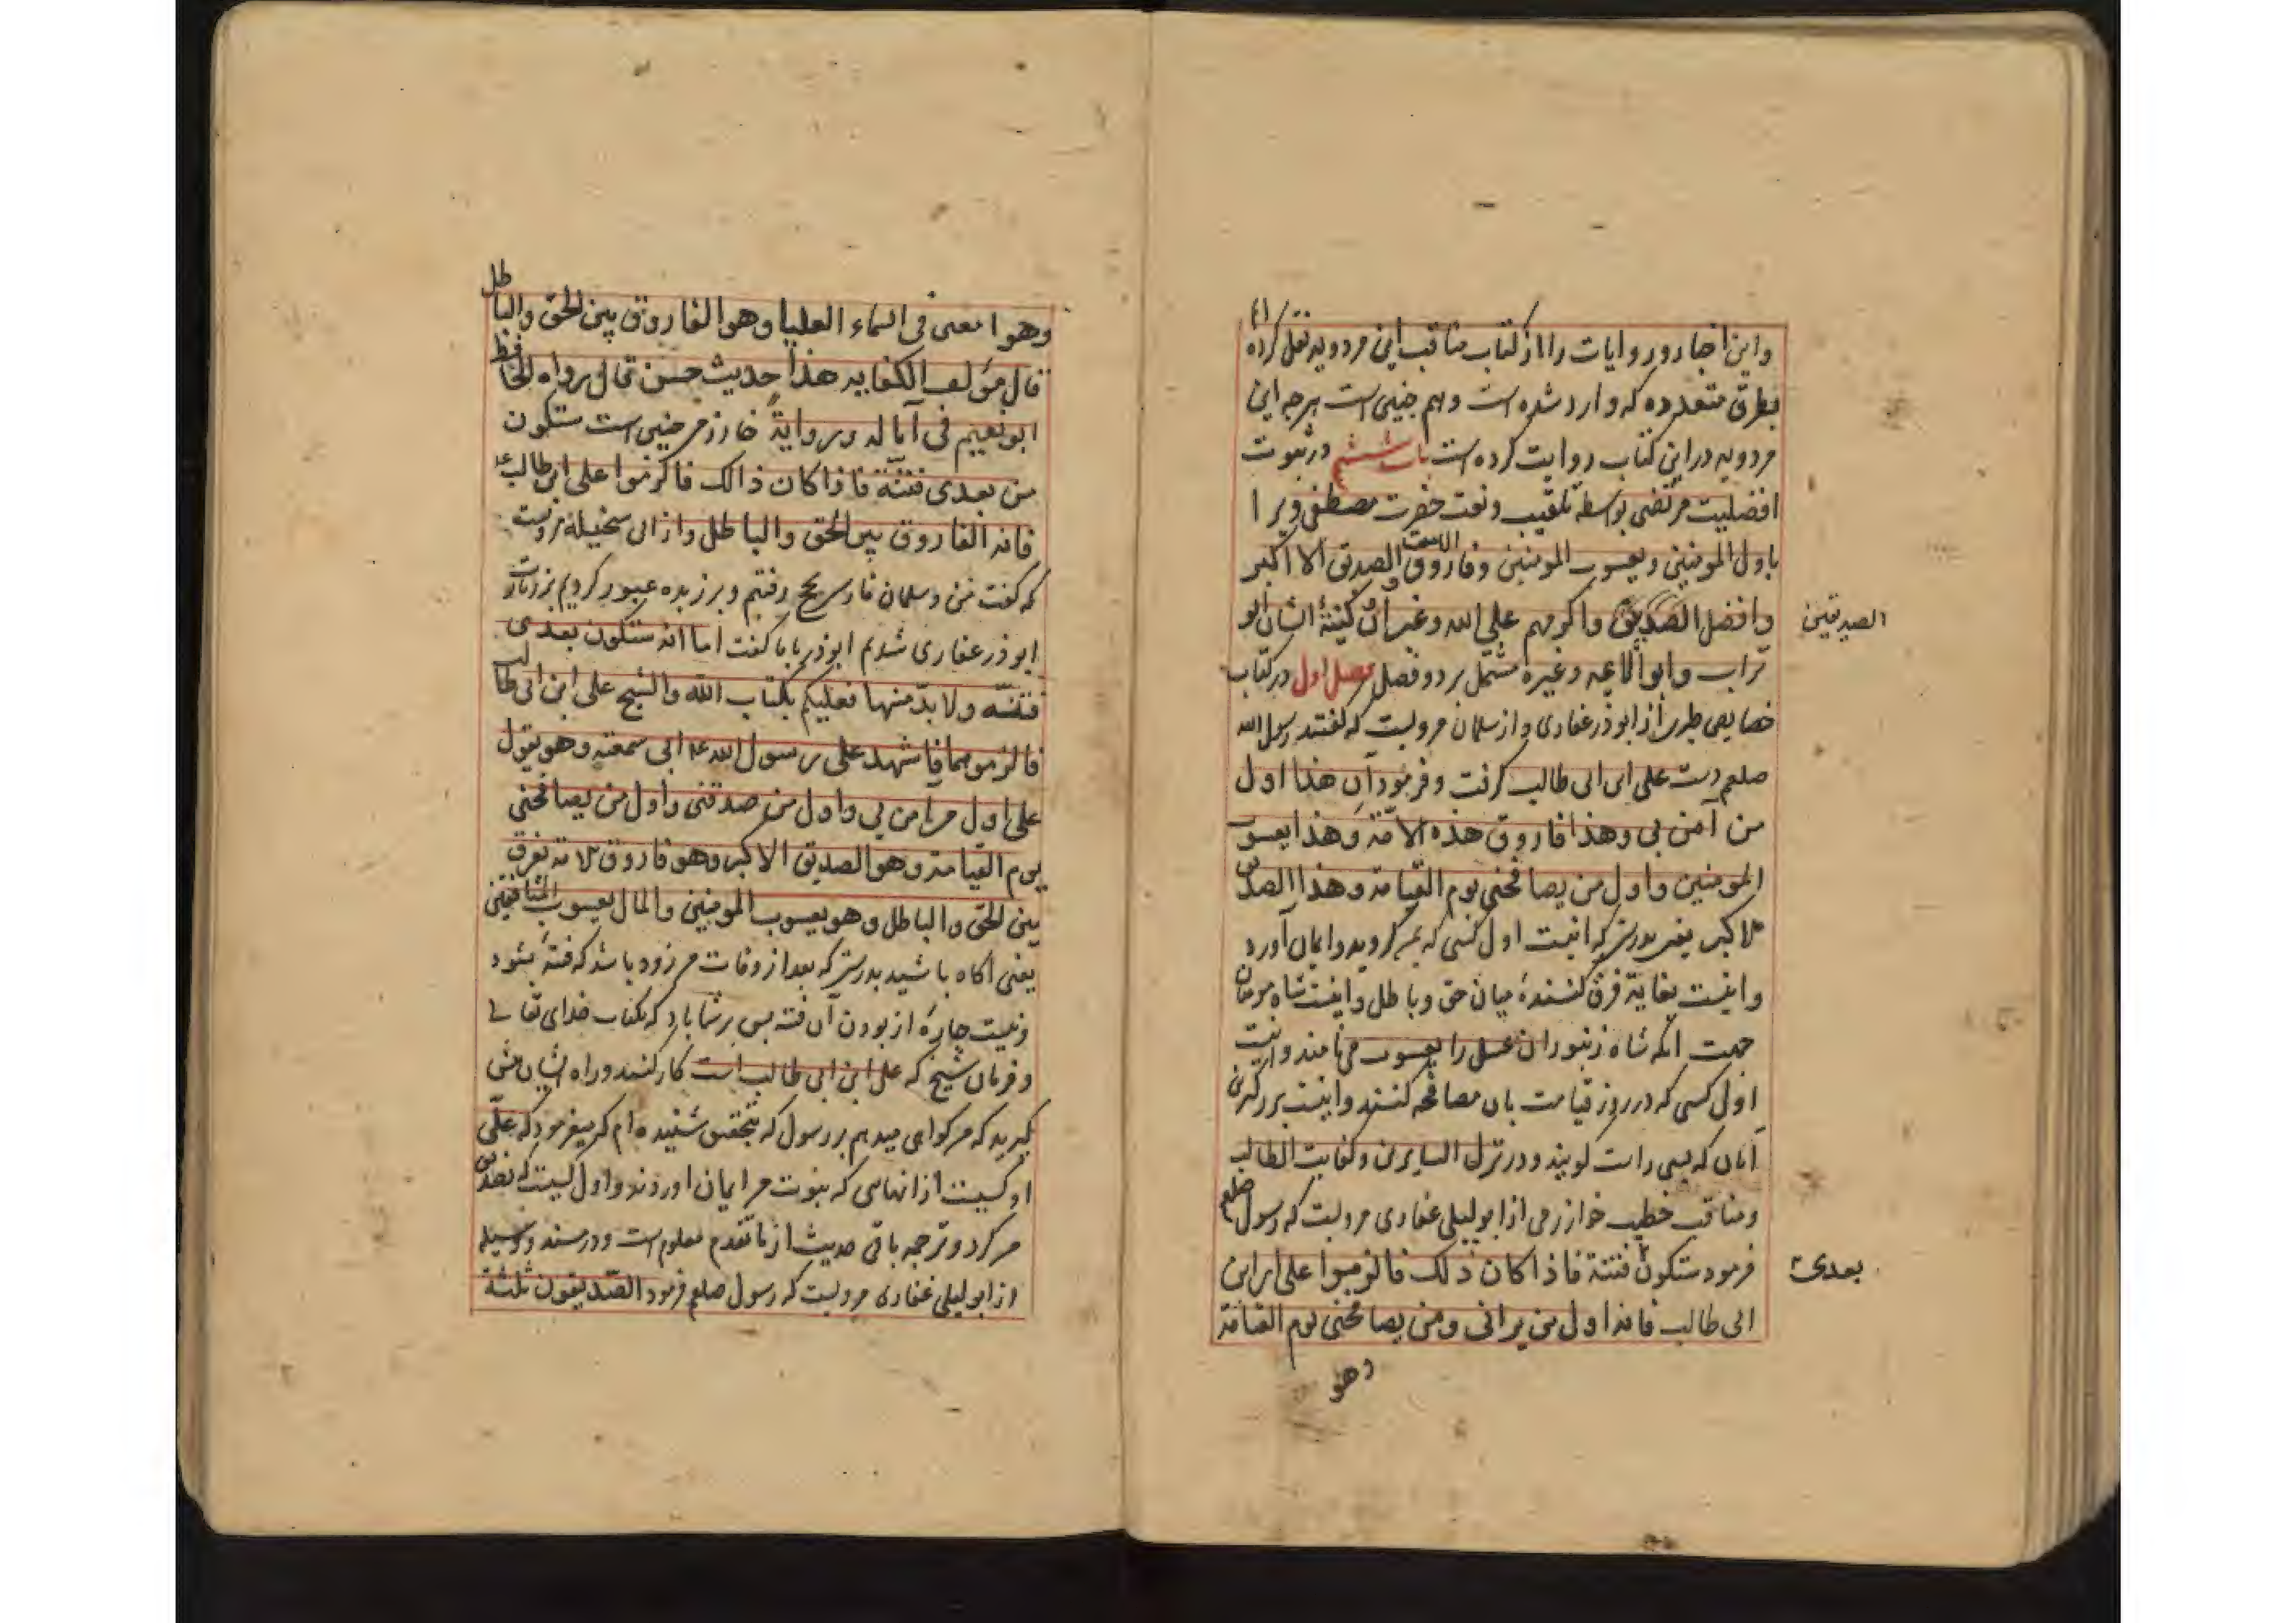 واین اخبار و روایات را از کتاب مناقب ابن مردویه نقل کرده
بطرق متعدده که وارد شده است وهم چنین است هرچه ابن
مردویه در این کتاب روایت کرده است باب ششم در ثبوت
افضلیت مرتضی بواسطه تلقیب ونعت حضرت مصطفی ویرا
باول المومنین ویعسوب المومنین وفاروق الامت والصدیق الاکبر
وافضل الصدیقین واکرمهم علی الله وغیر آن وکنیهٔ ایشان ابو
تراب وابو الائمه وغیره مشتمل بر دو فصل فصل اول در کتاب
خصایص طبری از ابوذر غفاری واز سلمان مرویست که گفتند رسول الله
صلعم دست علی ابن ابی طالب گرفت وفرمود ان هذا اول
من آمن بی وهذا فاروق هذه الامّة وهذا یعسوب
المومنین واول من یصافحنی یوم القیامة وهذا الصدیق
الاکبر یعنی بدرستی که اینست اول کسی که بمن گروید وایمان آورد
واینست بغایة فرق کنندهٔ میان حق وباطل واینست شاه مومنان
جهت آنکه شاه زنبوران عسل را یعسوب می نامند واینست
اول کسی که در روز قیامت بان مصافحه کنند واینست بزرگترین
آنان که بسی راست گویند ودر نزل السایرین وکفایت الطالب
ومناقب خطیب خوارزمی از ابو لیلی غفاری مرویست که رسول صلعم
فرمود ستکون فتنة فاذا کان ذلک فالزموا علی ابن
ابی طالب فانه اول من یرانی ومن یصافحنی یوم القیامة
الصدیقین
بعدی
وهو
وهو امعنی فی السماء العلیا وهو الفاروق بین الحق والباطل
قال مؤلف الکفایه هذا حدیث حسن عال رواه الحافظ
ابو نعیم فی آماله وبروایة خوارزمی چنین است ستکون
من بعدی فتنة فاذا کان ذالک فاکرموا علی ابن طالب
فانه الفاروق بین الحق والباطل واز ابی سخیله مرویست
که گفت من وسلمان فارسی بحج رفتیم وبر زبده عبور کردیم بزیارت
ابوذر غفاری شدیم ابوذر باما گفت اما انه ستکون بعدی
فتنة ولابدّ منها فعلیکم بکتاب الله والشیخ علی ابن ابی طالب
فالزموهما فاشهد علی رسول الله انی سمعته وهو یقول
علی اول من آمن بی واول من صدقنی واول من یصافحنی
یوم القیامة وهو الصدیق الاکبر وهو فاروق الامة یفرق
بین الحق والباطل وهو یعسوب المومنین والمال یعسوب المنافقین
یعنی آگاه باشید بدرستی که بعد از وفات من زود باشد که فتنهٔ بشود
ونیست چارهٔ از بودن آن فتنه پس بر شما باد که بکتاب خدای تعالی
وفرمان شیخ که علی ابن ابی طالب است کار کنند وراه ایشان پیش
گیرید که من گواهی میدهم بر رسول که بتحقیق شنیده ام که میفرمود که علی
اول کسیست از انهایی که بنبوت من ایمان اوردند واول کسیست که تصدیق
من کرد وترجمه باقی حدیث از ما تقدم معلوم است ودر مسند ووسیله
از ابو لیلی غفاری مرویست که رسول صلعم فرمود الصدیقون ثلثة